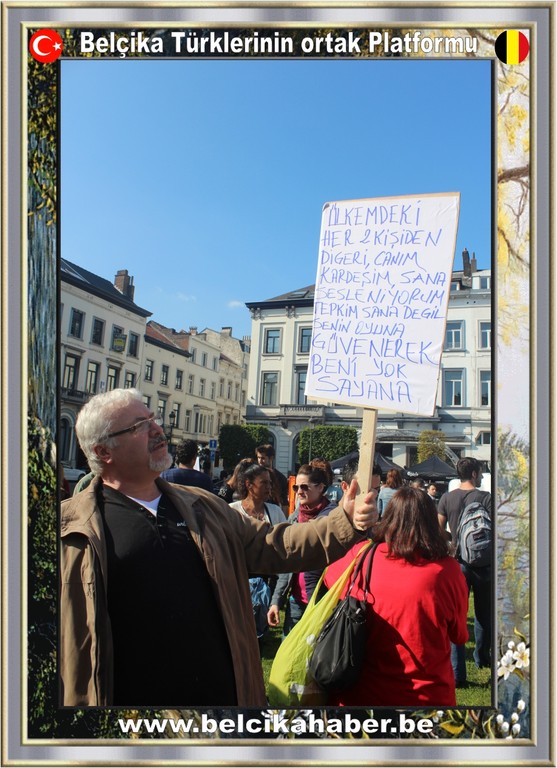 Belçika Türklerinin ortak Platformu
ÜLKEMDEKİ
HER 2 KİŞİDEN
DİĞERİ, CANIM
KARDEŞİM, SANA
SESLENİYORUM
TEPKİM SANA DEĞİL
SENİN OYUNA
GÜVENEREK
BENİ YOK
SAYANA
www.belcikahaber.be